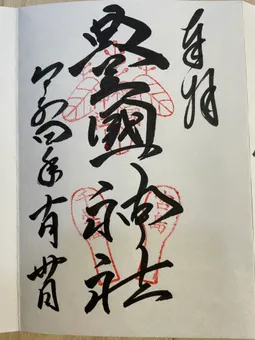 奉拝
豊國神社
令和四年十月廿日